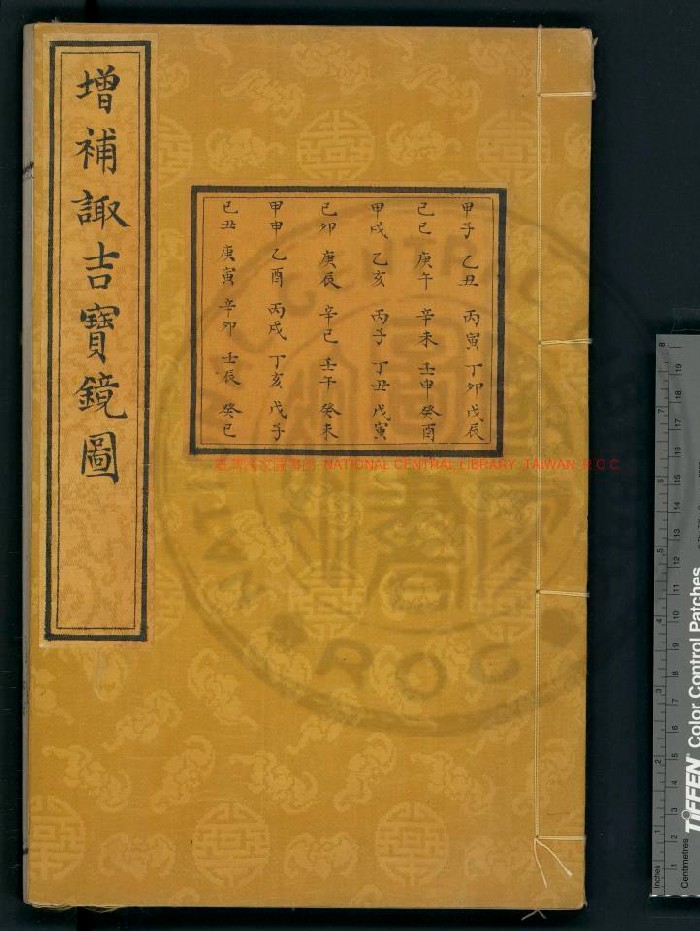 增補諏吉寶鏡圖
甲子 乙丑 丙寅 丁卯 戊辰
己巳 庚午 辛未 壬申 癸酉
甲戌 乙亥 丙子 丁丑 戊寅
己卯 庚辰 辛巳 壬午 癸未
甲申 乙酉 丙戌 丁亥 戊子
己丑 庚寅 辛卯 壬辰 癸巳
NATIONAL CENTRAL LIBRARY, TAIWAN R O C
ROC
Inches
1 2 3 4 5 6 7 8
Centimetres
1 2 3 4 5 6 7 8 9 10 11 12 13 14 15 16 17 18 19
TIFFEN Color Control Patches